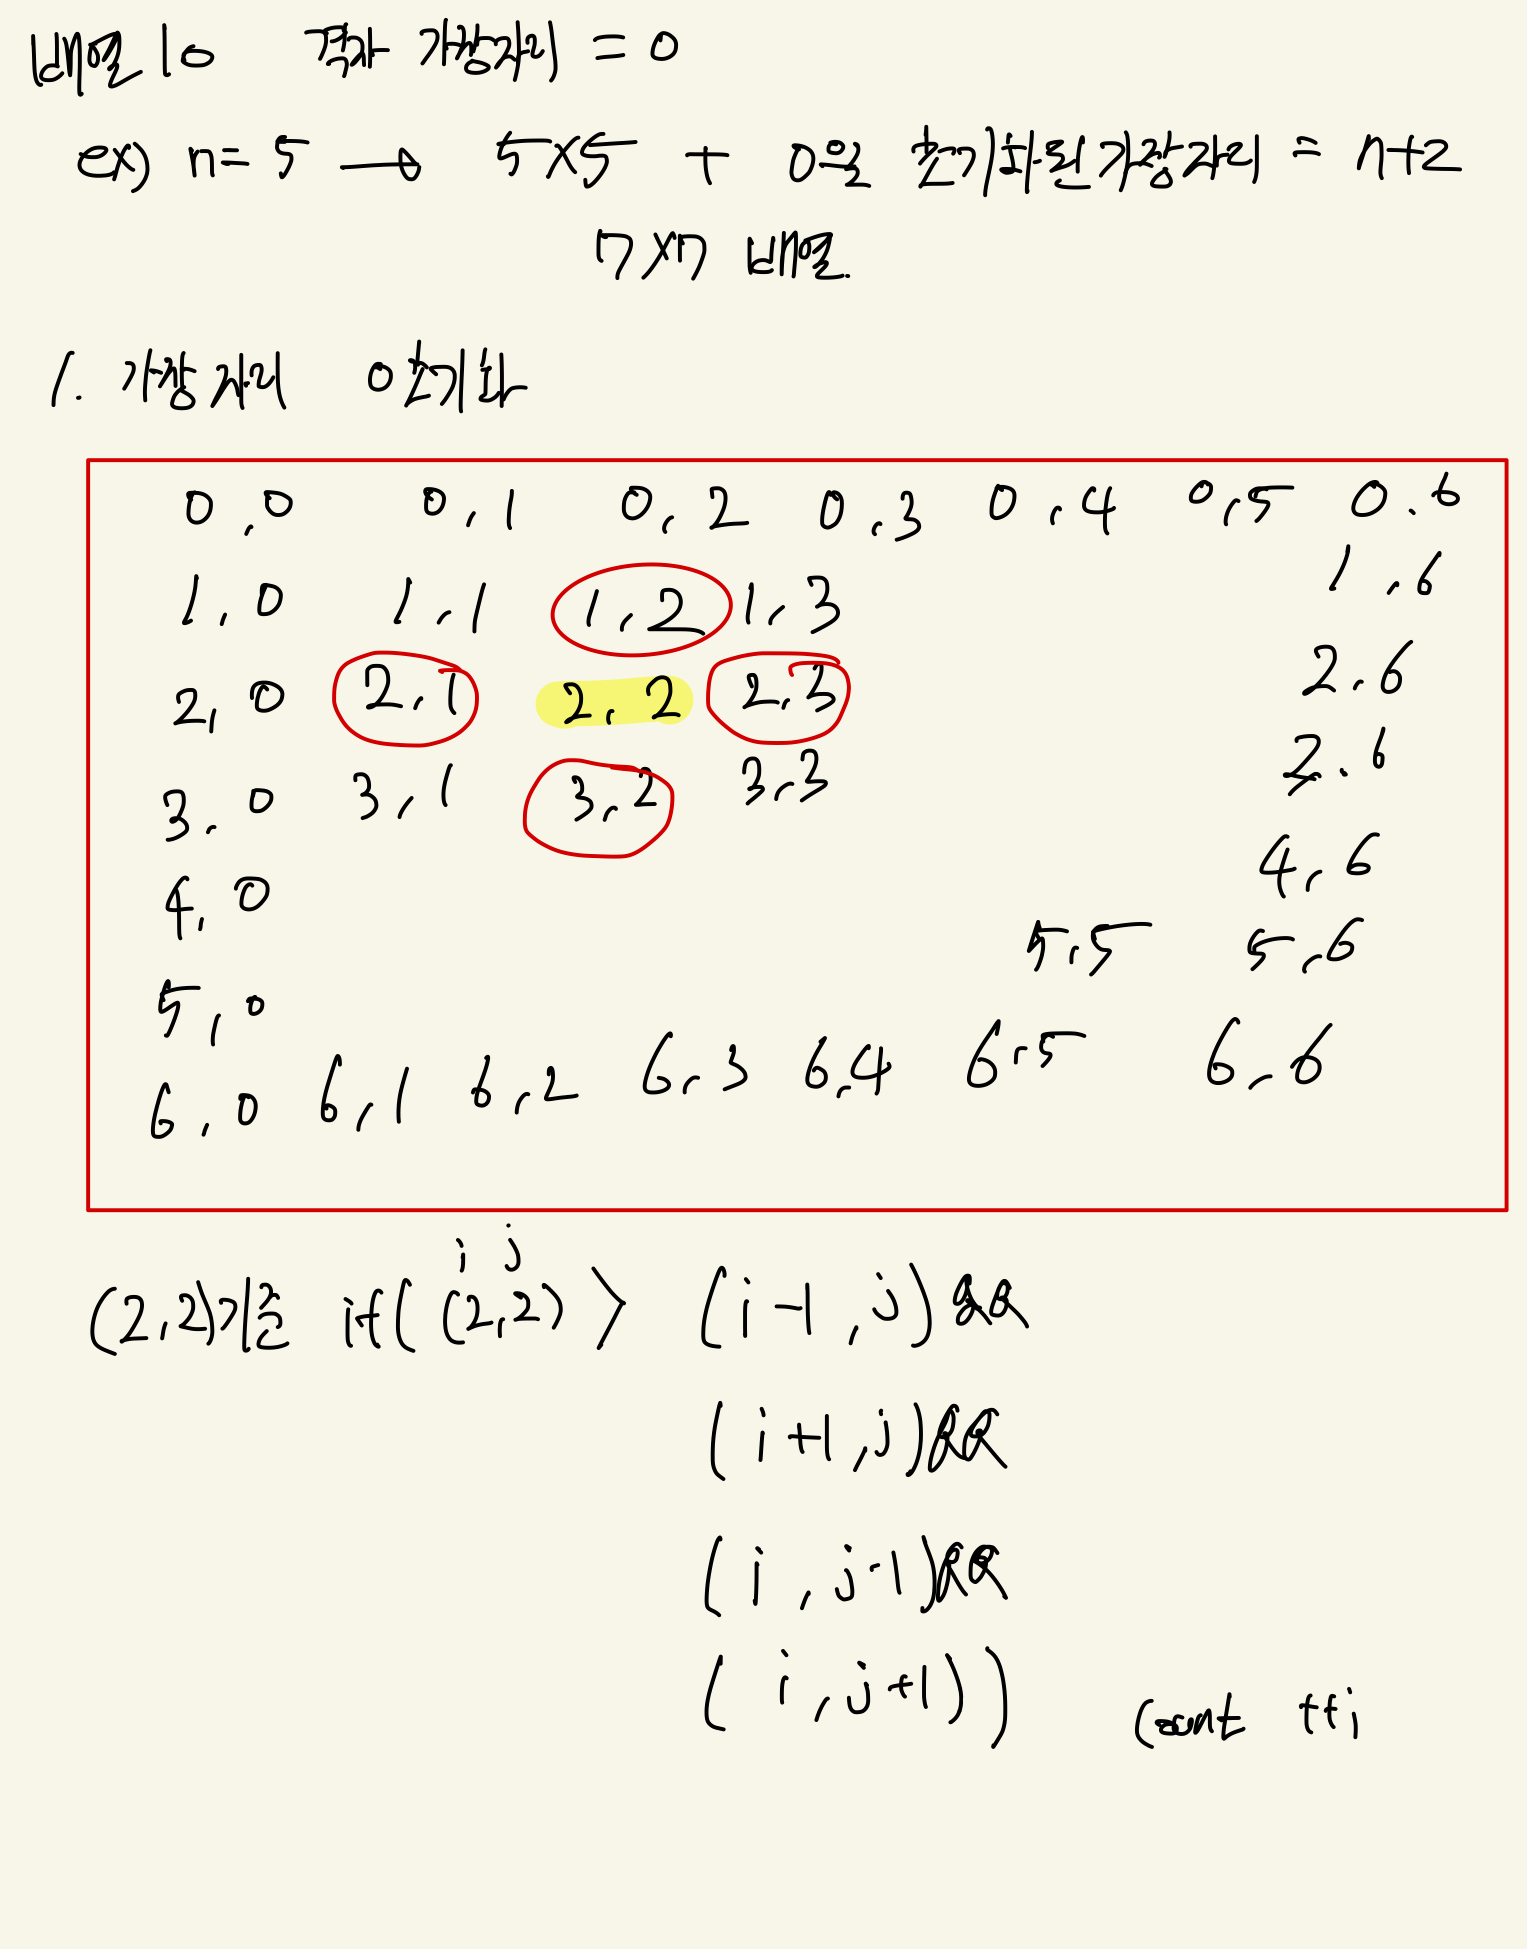 배열 10 격자 가장자리 = 0
ex) n= 5 → 5X5 + 0으로 초기화된 가장자리 = n+2
7X7 배열.
1. 가장자리 0 초기화
0,0 0,1 0,2 0,3 0,4 0,5 0.6
1,0 1,1 1,2 1,3 1,6
2,0 2,1 2,2 2,3 2,6
3,0 3,1 3,2 3,3 2.6
4,0 4,6
5,0 5,5 5,6
6,0 6,1 6,2 6,3 6,4 6,5 6,6
i j
(2,2)기준 if( (2,2) > (i-1,j)&&
(i+1,j)&&
(i,j-1)&&
(i,j+1)) count ++;